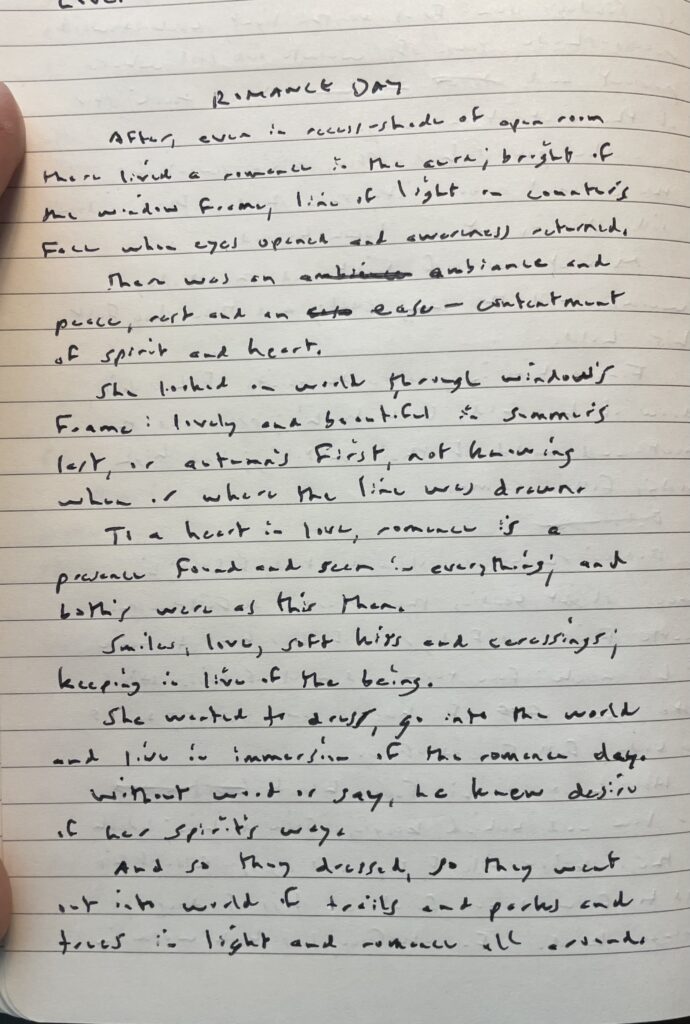 ROMANCE DAY
After, even in recess-shade of open room
there lived a romance in the aura; bright of
the window frame, line of light on counter's
face when eyes opened and awareness returned.
There was an ambiance and
peace, rest and an ease – contentment
of spirit and heart.
She looked on world through window's
frame: lovely and beautiful in summer's
last, or autumn's first, not knowing
when or where the line was drawn.
To a heart in love, romance is a
presence found and seen in everything; and
both's were as this then.
Smiles, love, soft kiss and caressings;
keeping in live of the being.
She wanted to dress, go into the world
and live in immersion of the romance day.
Without word or say, he knew desire
of her spirit's way.
And so they dressed, so they went
out into world of trails and parks and
trees in light and romance all around.